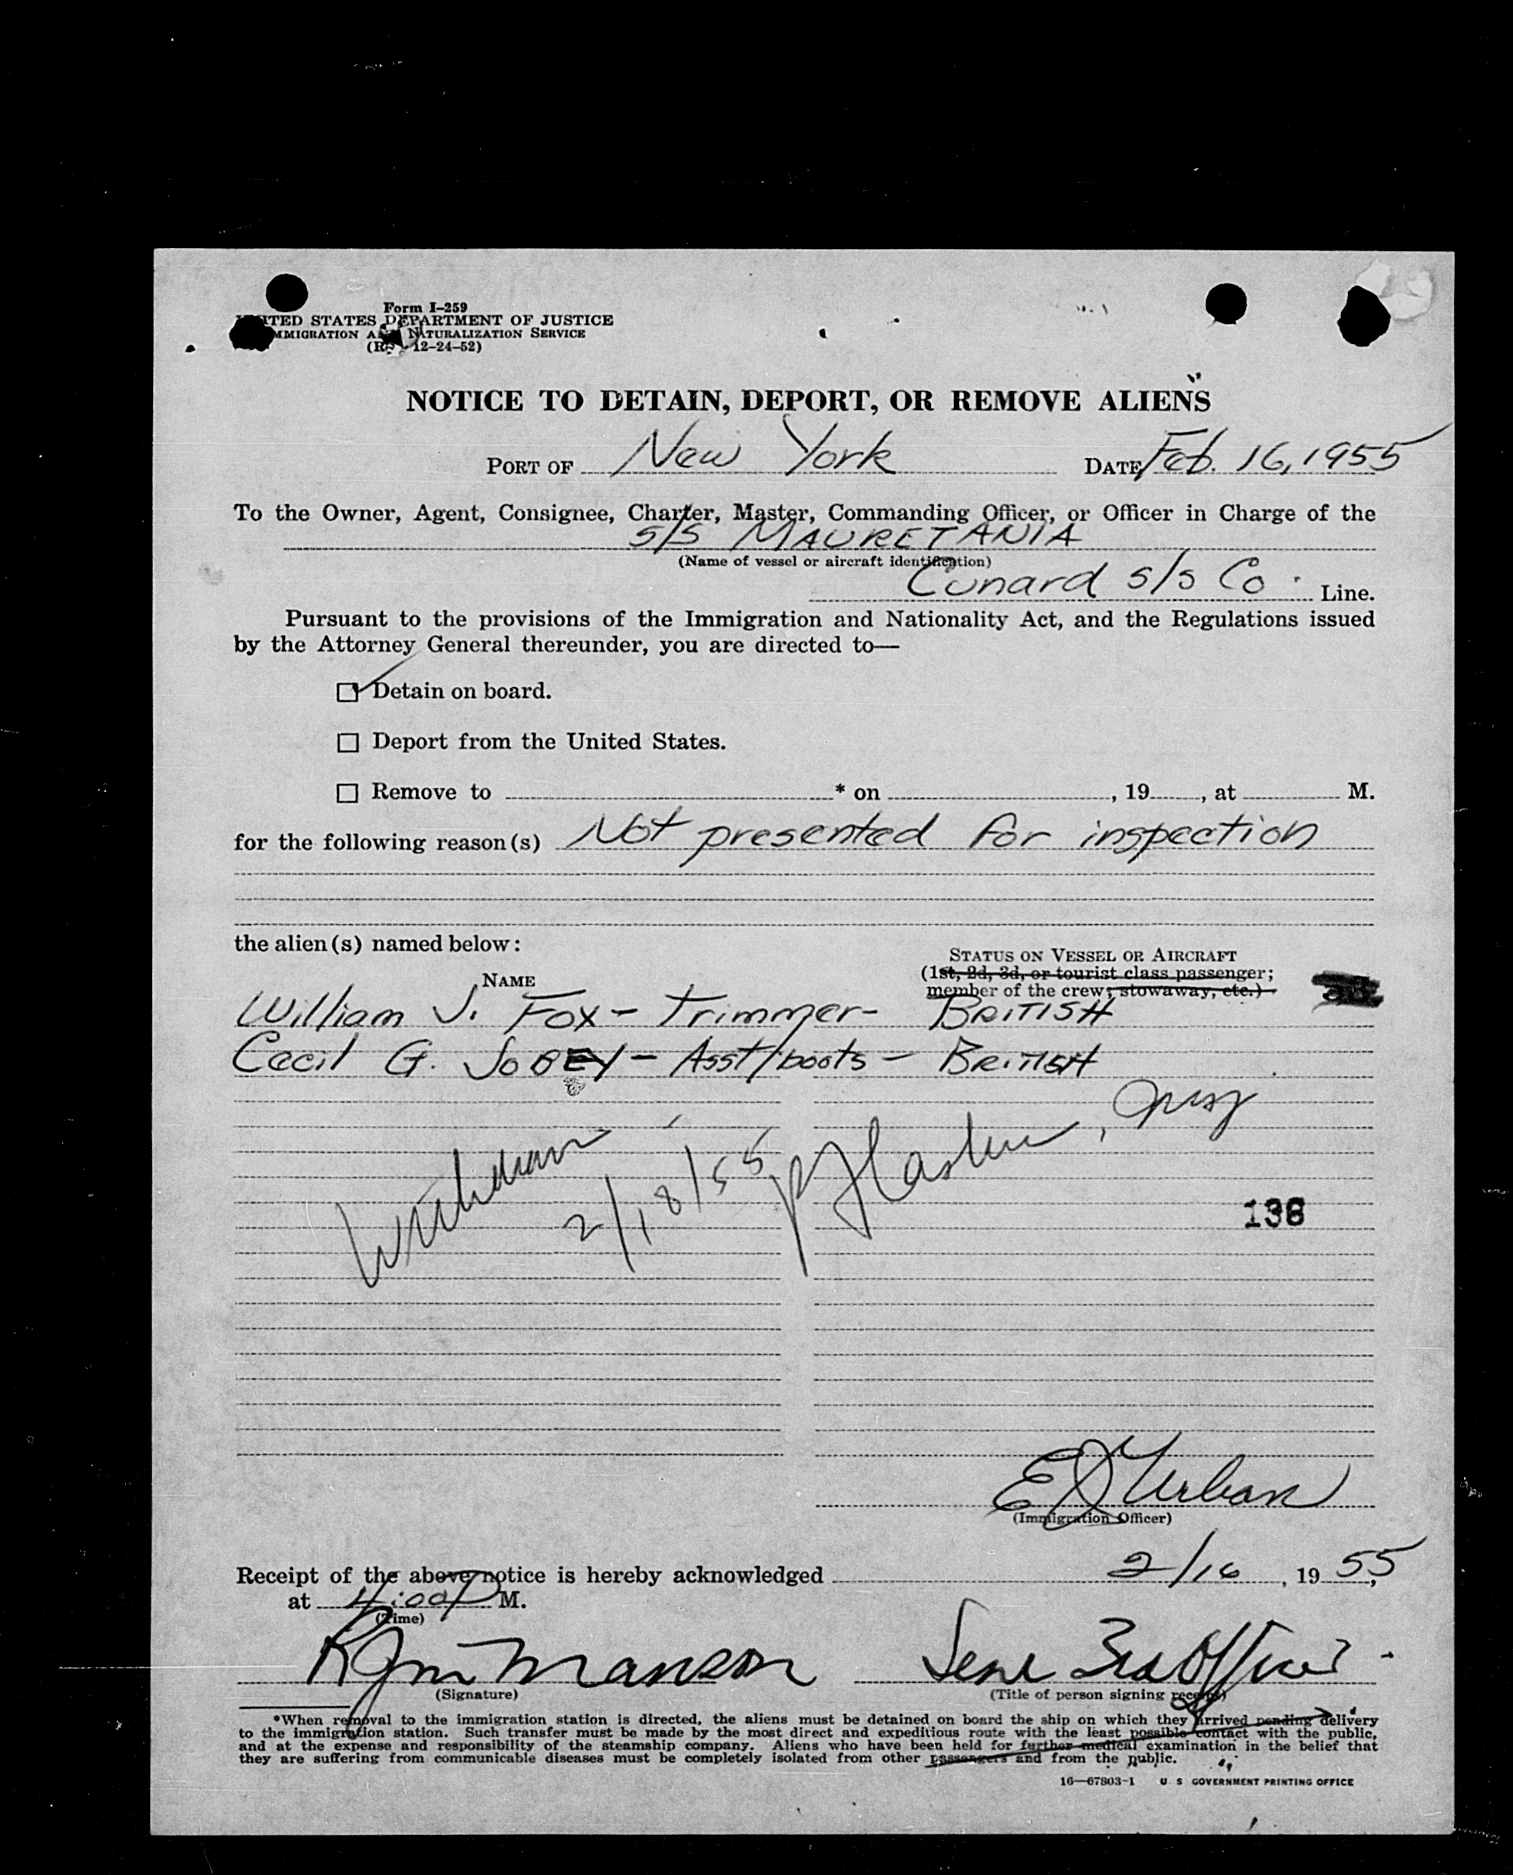 Form I-259
UNITED STATES DEPARTMENT OF JUSTICE
IMMIGRATION AND NATURALIZATION SERVICE
(Rev. 12-24-52)
NOTICE TO DETAIN, DEPORT, OR REMOVE ALIENS
PORT OF New York DATE Feb. 16, 1955
To the Owner, Agent, Consignee, Charter, Master, Commanding Officer, or Officer in Charge of the
S/S MAURETANIA
(Name of vessel or aircraft identification)
Cunard S/S Co. Line.
Pursuant to the provisions of the Immigration and Nationality Act, and the Regulations issued
by the Attorney General thereunder, you are directed to—
Detain on board.
Deport from the United States.
Remove to * on , 19 , at M.
for the following reason(s) Not presented for inspection
the alien(s) named below:
STATUS ON VESSEL OR AIRCRAFT
NAME (1st, 2d, 3d, or tourist class passenger;
member of the crew; stowaway, etc.)
William J. Fox - Trimmer - BRITISH
Cecil G. JOBEY - Asst/boots - BRITISH
2/18/55
138
E J Urban
(Immigration Officer)
Receipt of the above notice is hereby acknowledged 2/16, 1955,
at 4:00 P M.
(Time)
Manson Senr 3rd Officer.
(Signature) (Title of person signing receipt)
*When removal to the immigration station is directed, the aliens must be detained on board the ship on which they arrived pending delivery
to the immigration station. Such transfer must be made by the most direct and expeditious route with the least possible contact with the public,
and at the expense and responsibility of the steamship company. Aliens who have been held for further medical examination in the belief that
they are suffering from communicable diseases must be completely isolated from other passengers and from the public.
16—67803-1 U. S. GOVERNMENT PRINTING OFFICE